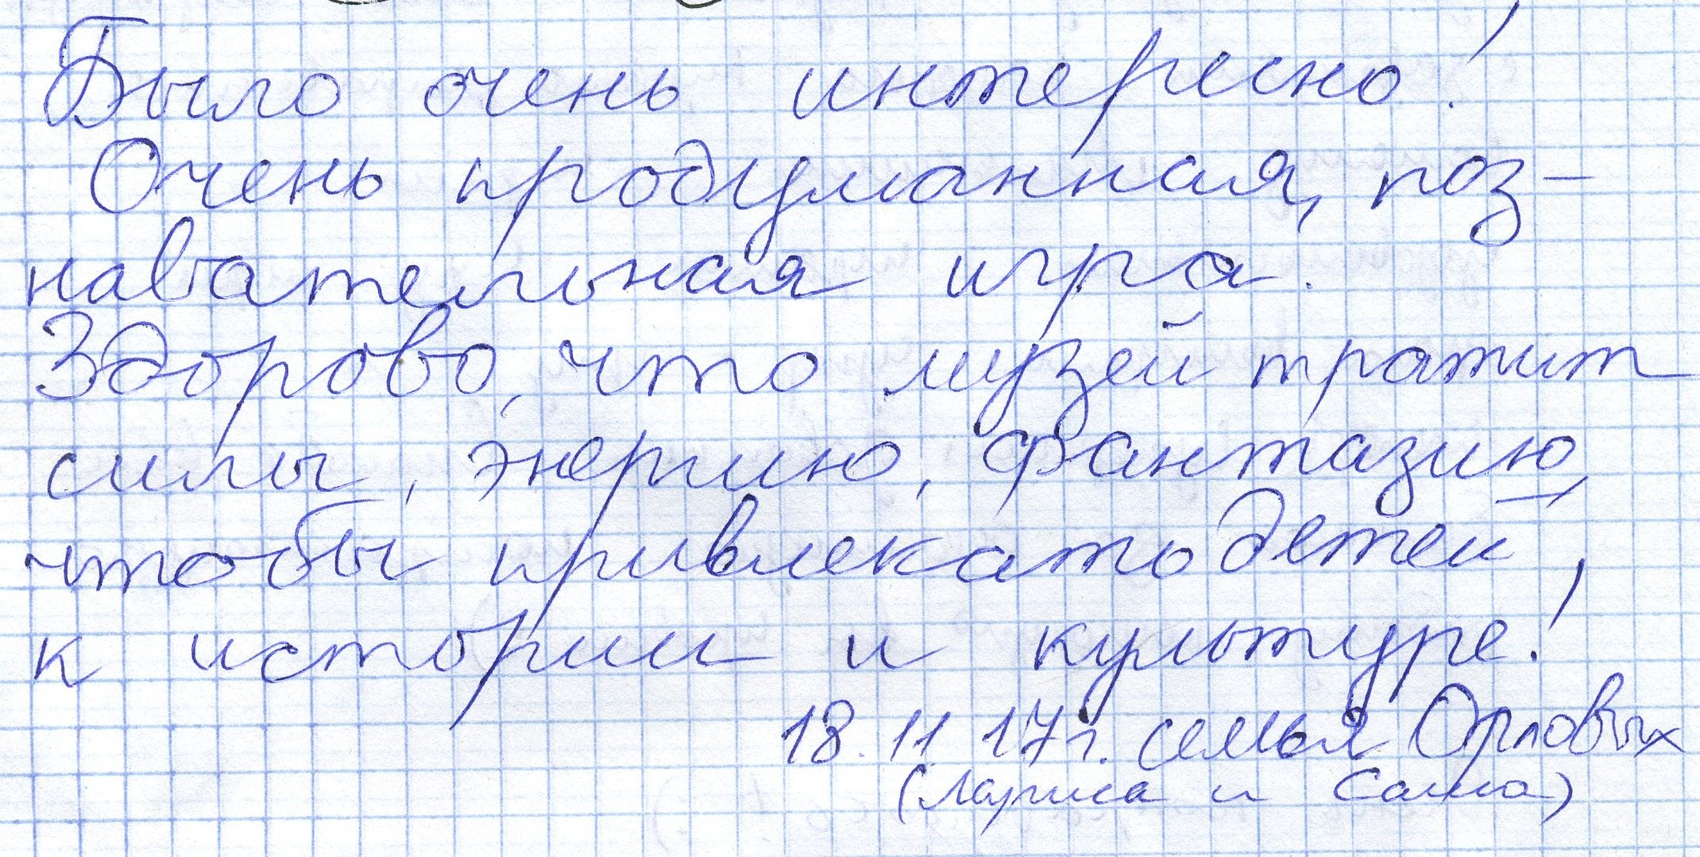 Было очень интересно!
Очень продуманная, поз-
навательная игра.
Здорово, что музей тратит
силы, энергию, фантазию,
чтобы привлекать детей,
к истории и культуре!
18.11.17г. семья Орловых
(Лариса и Саша)